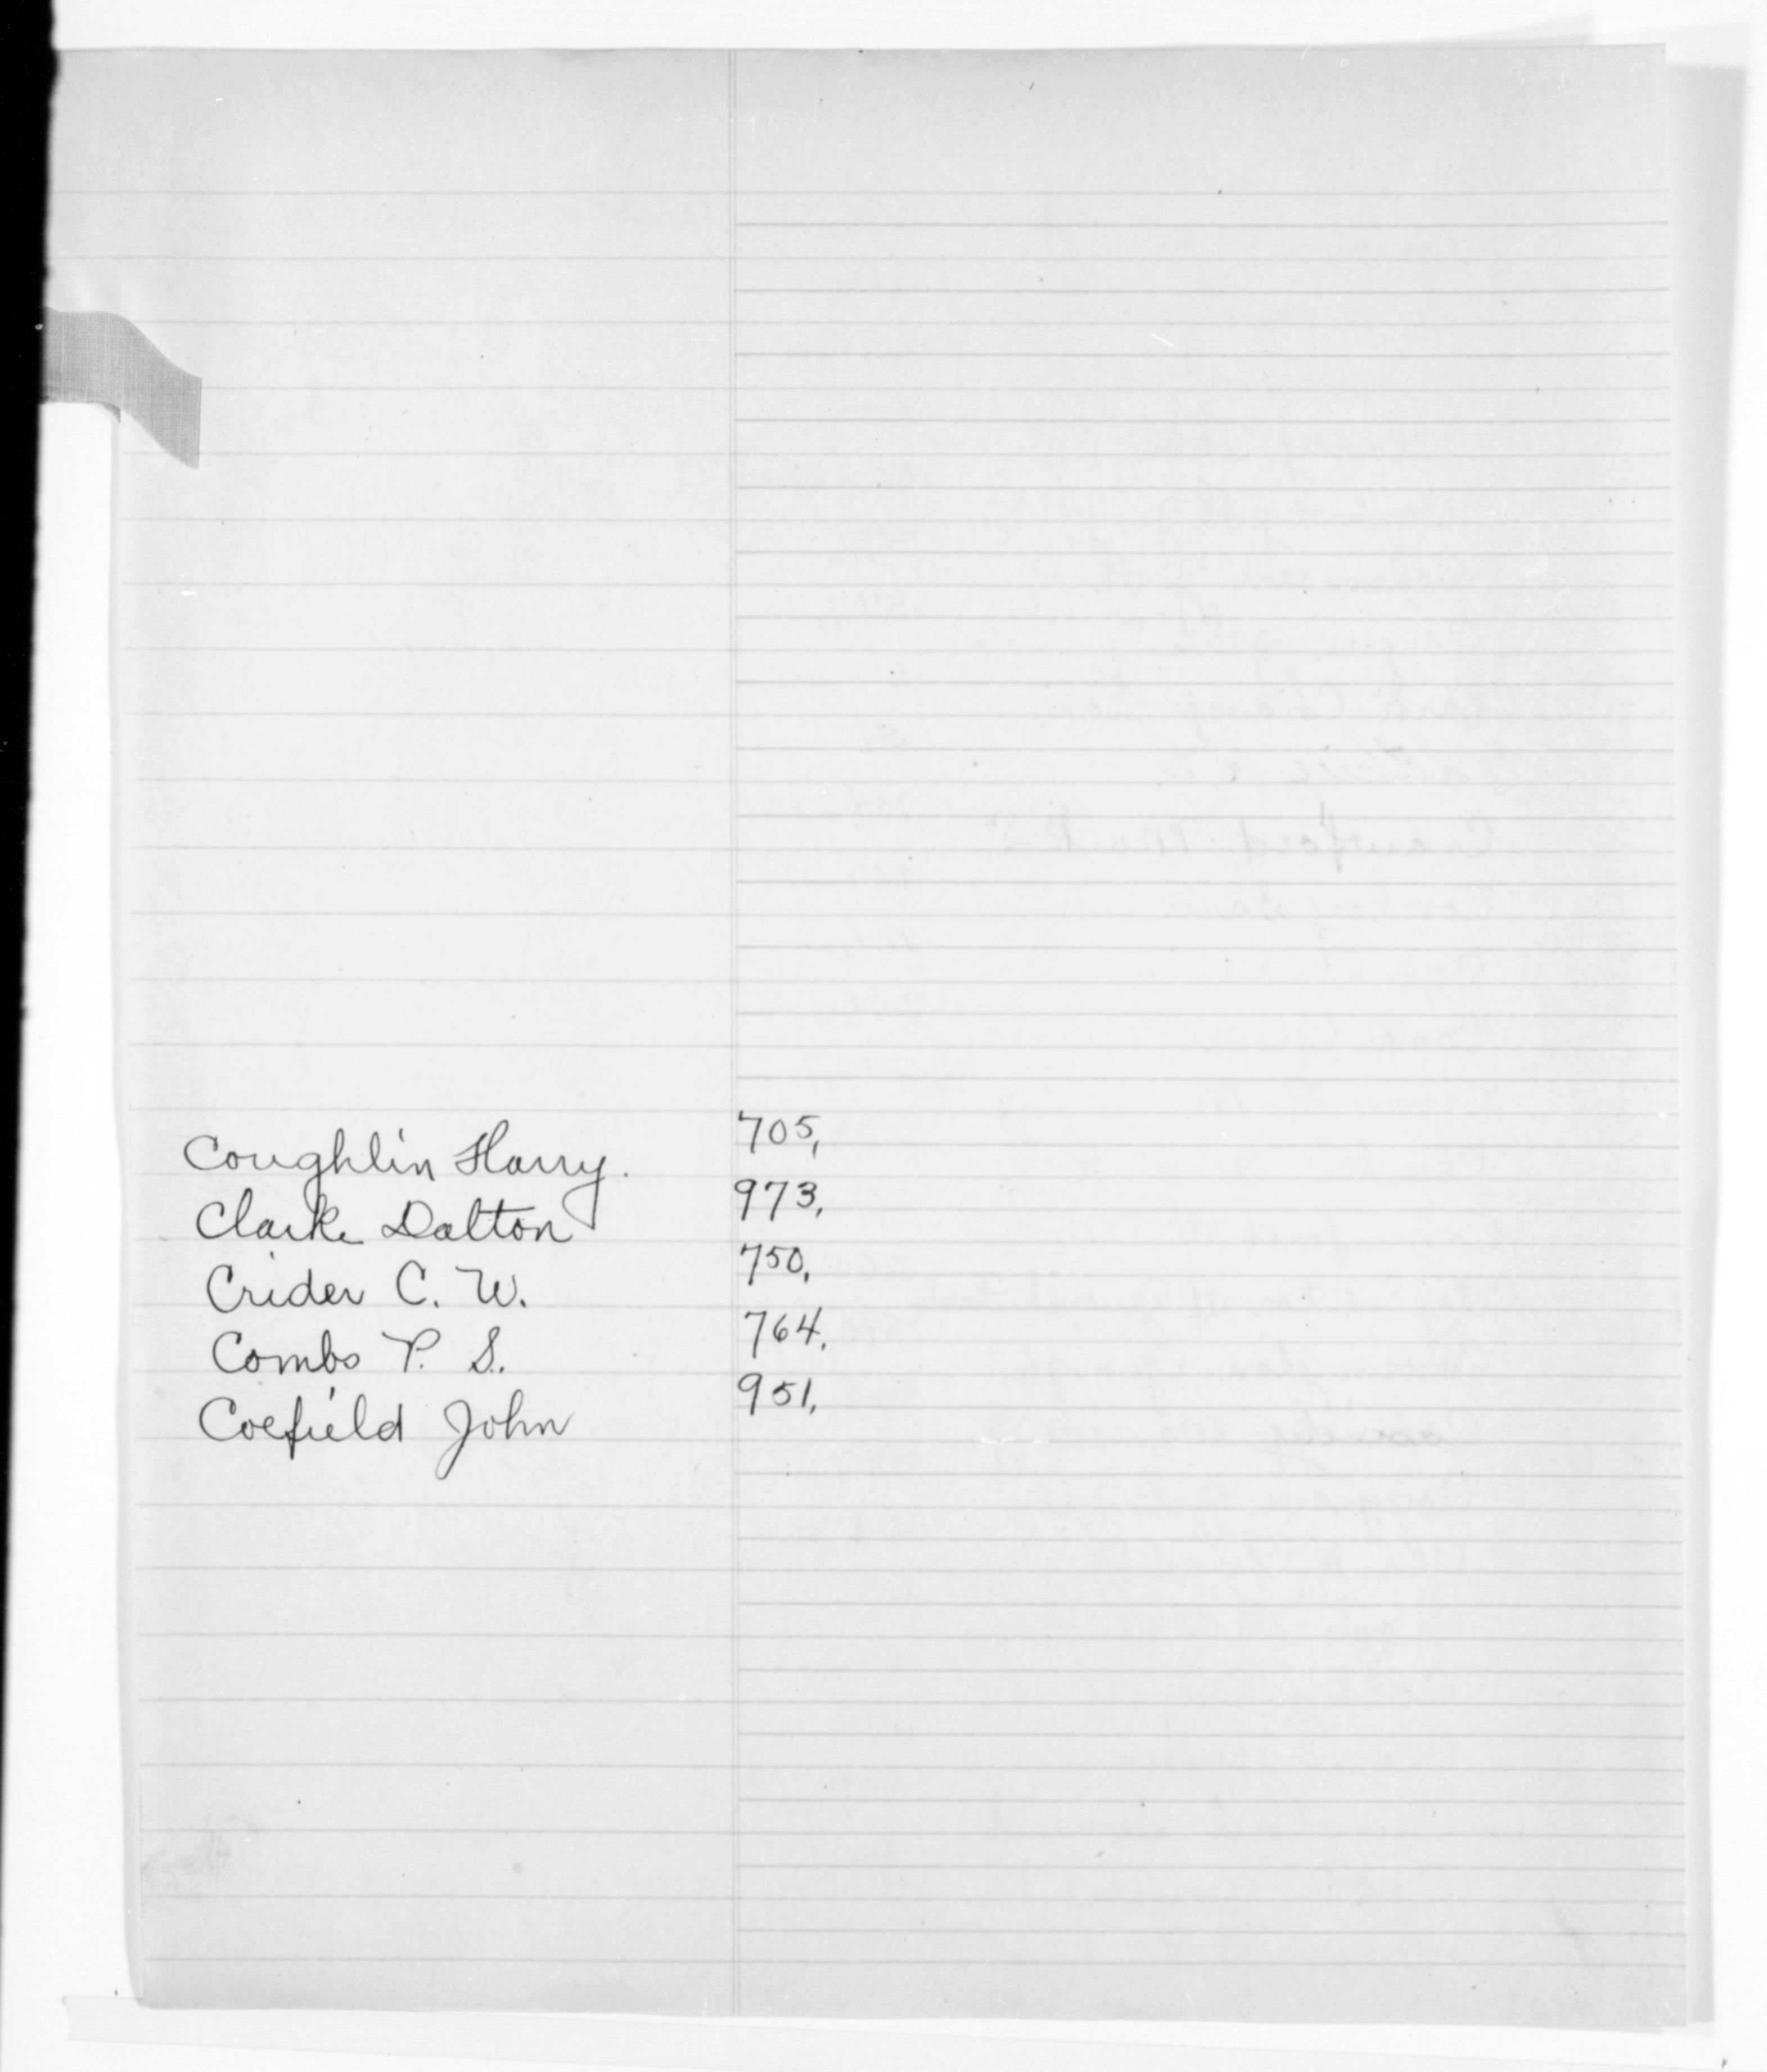 Coughlin Harry. 705,
Clarke Dalton 973,
Crider C. W. 750,
Combs P. S. 764,
Coefield John 951,